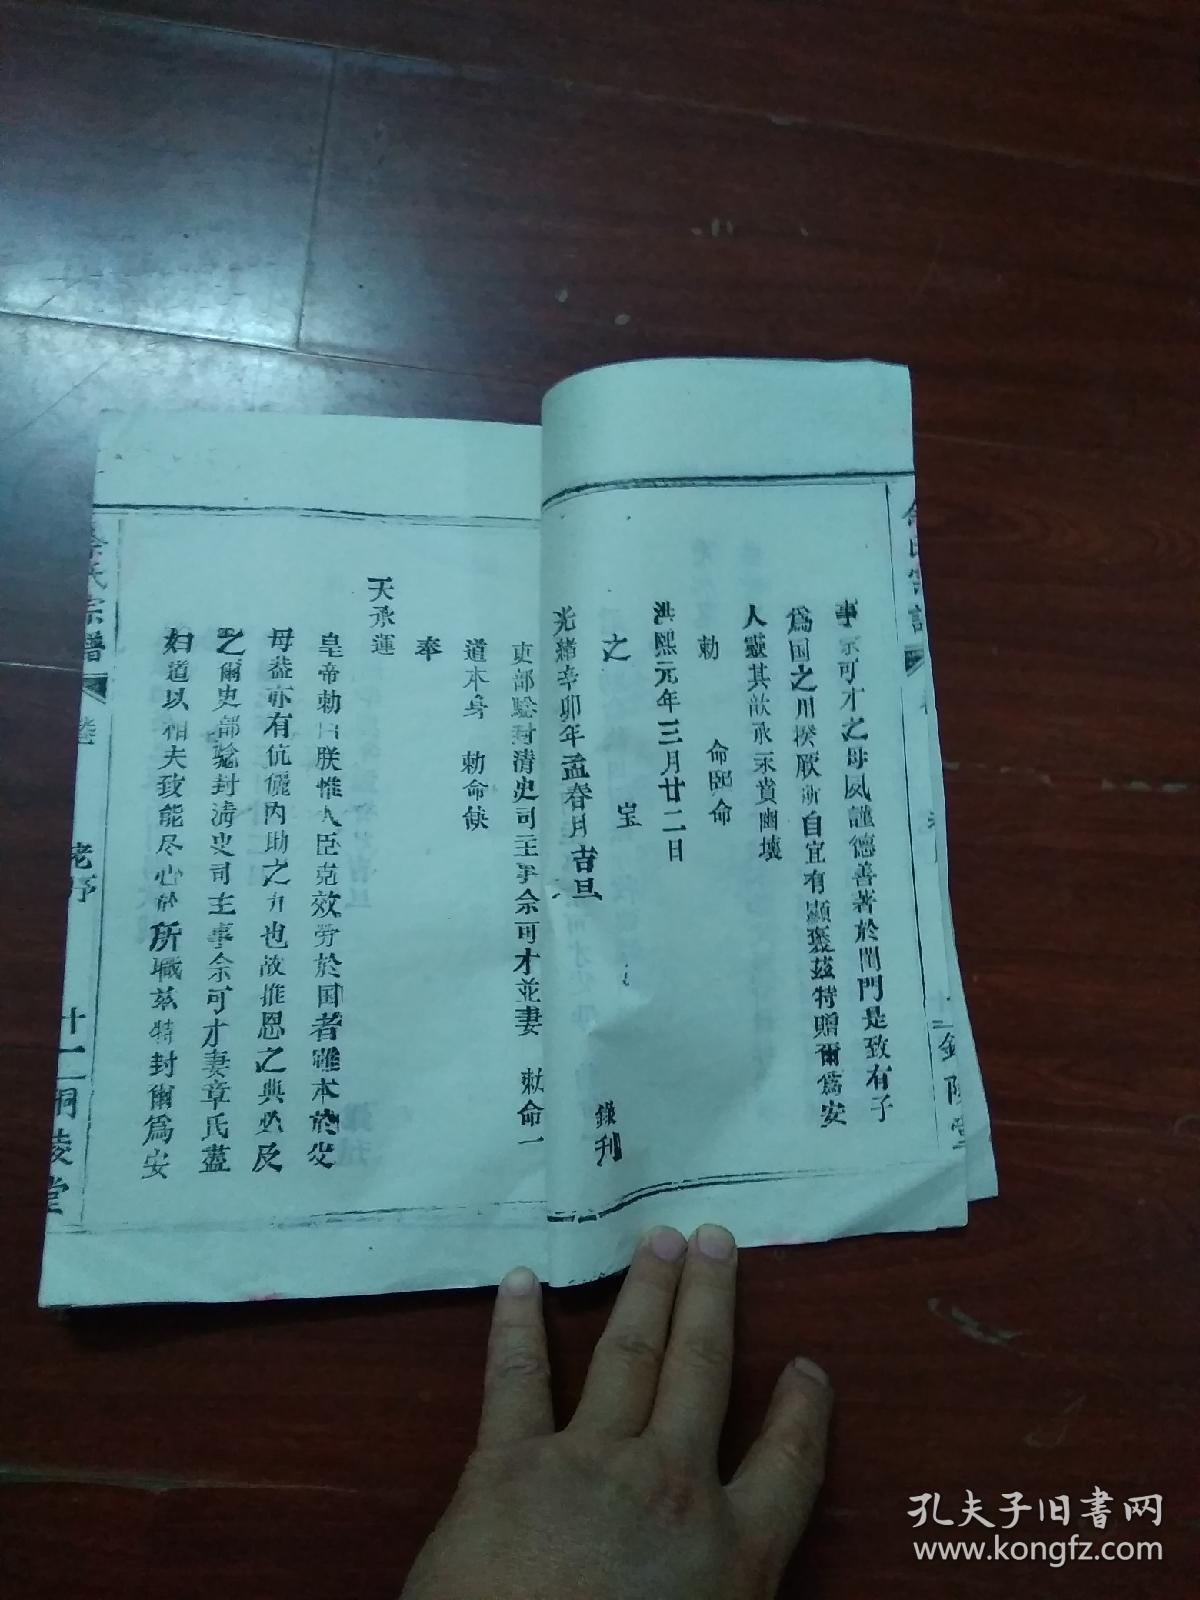 事余可才之母夙謹德善著於閨門是致有子
爲国之用揆厥所自宜有顯褒茲特贈爾爲安
人靈其歆承永賁幽壤
勅 命
洪熙元年三月廿二日
之 宝
光緒辛卯年孟春月吉旦 錄刋
吏部騐封清吏司主事余可才並妻 勅命一
道本身 勅命缺
奉
天承運
皇帝勅曰朕惟人臣克效劳於国者雖本於父
母葢亦有伉儷内助之力也故推恩之典必及
之爾吏部騐封清吏司主事余可才妻章氏葢
妇道以相夫致能尽心於所職茲特封爾爲安
余氏宗譜
孔夫子旧书网
www.kongfz.com